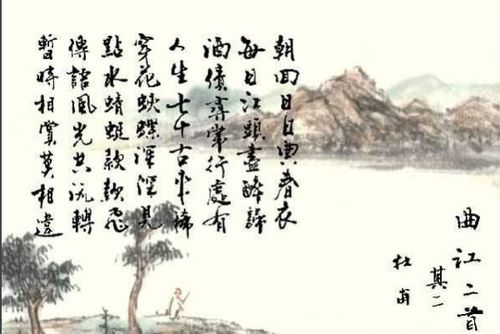 曲江二首
其二
杜甫
朝回日日典春衣
每日江頭盡醉歸
酒債尋常行處有
人生七十古來稀
穿花蛺蝶深深見
點水蜻蜓款款飛
傳語風光共流轉
暫時相賞莫相違